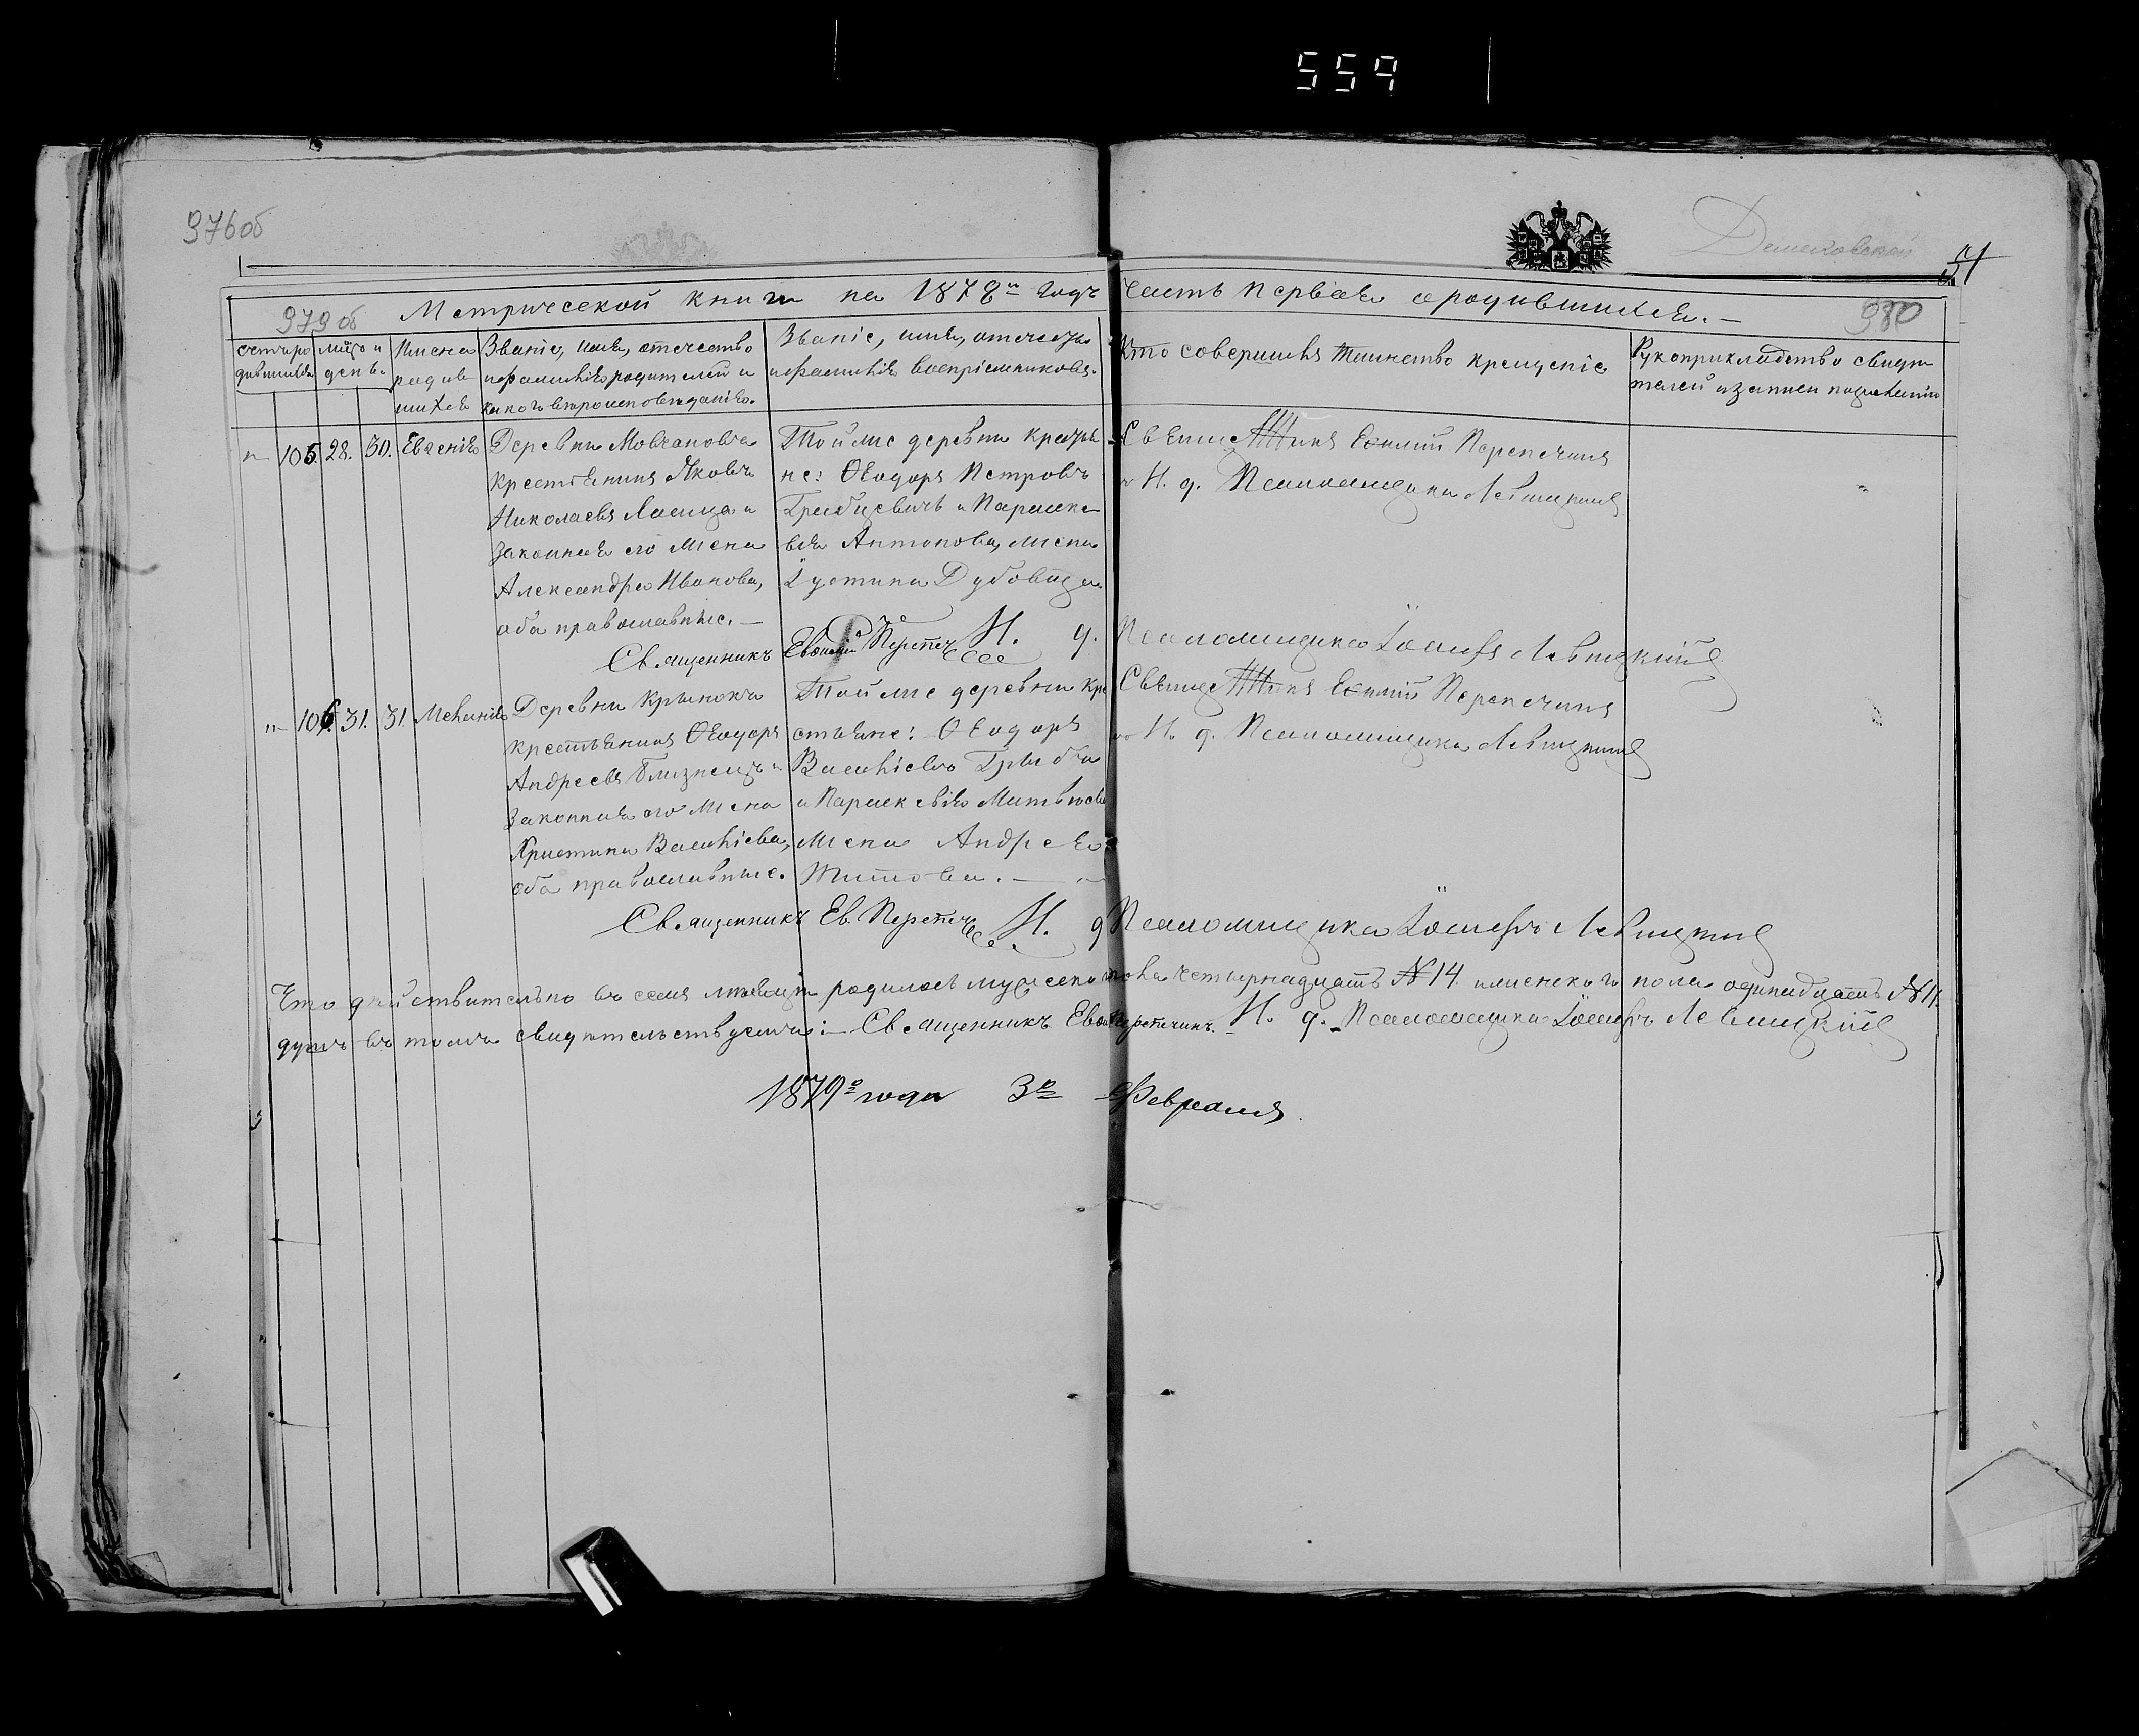 559
976об
Демеховской
979 об
980
Метрической книги на 1878й годъ часть первая о родившихся.
Счетъ родившихся
Мѣсяцъ и день
Имена родившихся
Званіе, имя, отечество
и фамилія родителей и
какого вѣроисповѣданія.
Званіе, имя, отечество
и фамилія воспріемниковъ.
Кто совершилъ таинство крещенія
Рукоприкладство свидѣтелей
о записи по желанію
105. 28. 30. Евгенія
Деревни Мовчановка
крестьянинъ Яковъ
Николаевъ Лисица и
законная его жена
Александра Иванова,
оба православные.
Той же деревни крестьяне:
Ѳеодоръ Петровъ
Грибцевичъ и Параскевія
Антонова, жена
Іустина Дубовца
Священникъ Евѳимій Перепечинъ
и. д. Псаломщика Левицкимъ
Священникъ Евѳимій Перепеч И. д. Псаломщика Іосифъ Левицкій
106. 31. 31. Меланія
Деревни Крынокъ
крестьянинъ Ѳеодоръ
Андреевъ Близнецъ и
законная его жена
Христина Василіева,
оба православные.
Той же деревни крестьяне:
Ѳеодоръ
Василіевъ
и Параскевія Матвѣева
жена Андрея
Титова.
Священникъ Евѳимій Перепечинъ
И. д. Псаломщика Левицкимъ
Священникъ Ев. Перепеч И. д. Псаломщика Іосифъ Левицкій
Что дѣйствительно въ семъ мѣсяцѣ родилось мужеска пола четырнадцать №14 и женскаго пола одинадцать №11.
душъ въ томъ свидѣтельствуемъ: Священникъ Евѳим Перепечинъ. И. д. Псаломщика Іосифъ Левицкій
1879о года 3о Февраля.